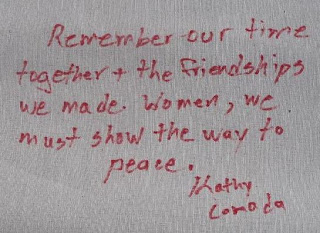 Remember our time
together + the friendships
we made. Women, we
must show the way to
peace.
Kathy
Canada